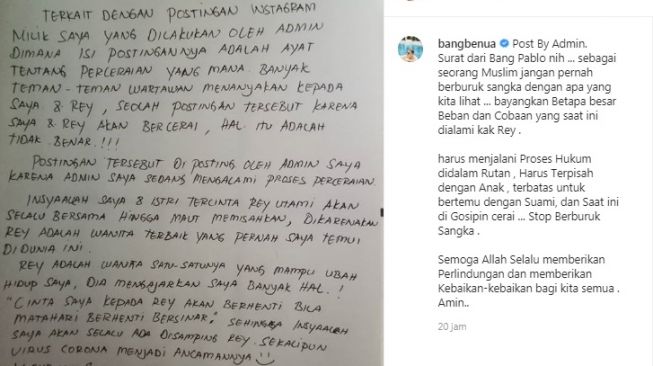 TERKAIT DENGAN POSTINGAN INSTAGRAM
MILIK SAYA YANG DILAKUKAN OLEH ADMIN
DIMANA ISI POSTINGANNYA ADALAH AYAT
TENTANG PERCERAIAN YANG MANA BANYAK
TEMAN-TEMAN WARTAWAN MENANYAKAN KEPADA
SAYA & REY, SEOLAH POSTINGAN TERSEBUT KARENA
SAYA & REY AKAN BERCERAI, HAL ITU ADALAH
TIDAK BENAR.!!!
POSTINGAN TERSEBUT DI POSTING OLEH ADMIN SAYA
KARENA ADMIN SAYA SEDANG MENGALAMI PROSES PERCERAIAN.
INSYAALAH SAYA & ISTRI TERCINTA REY UTAMI AKAN
SELALU BERSAMA HINGGA MAUT MEMISAHKAN, DIKARENAKAN
REY ADALAH WANITA TERBAIK YANG PERNAH SAYA TEMUI
DI DUNIA INI.
REY ADALAH WANITA SATU-SATUNYA YANG MAMPU UBAH
HIDUP SAYA, DIA MENGAJARKAN SAYA BANYAK HAL.!
"CINTA SAYA KEPADA REY AKAN BERHENTI BILA
MATAHARI BERHENTI BERSINAR," SEHINGGA INSYAALAH
SAYA AKAN SELALU ADA DISAMPING REY SEKALIPUN
VIRUS CORONA MENJADI ANCAMANNYA
bangbenua Post By Admin.
Surat dari Bang Pablo nih ... sebagai
seorang Muslim jangan pernah
berburuk sangka dengan apa yang
kita lihat ... bayangkan Betapa besar
Beban dan Cobaan yang saat ini
dialami kak Rey .
harus menjalani Proses Hukum
didalam Rutan , Harus Terpisah
dengan Anak , terbatas untuk
bertemu dengan Suami, dan Saat ini
di Gosipin cerai ... Stop Berburuk
Sangka .
Semoga Allah Selalu memberikan
Perlindungan dan memberikan
Kebaikan-kebaikan bagi kita semua .
Amin..
20 jam